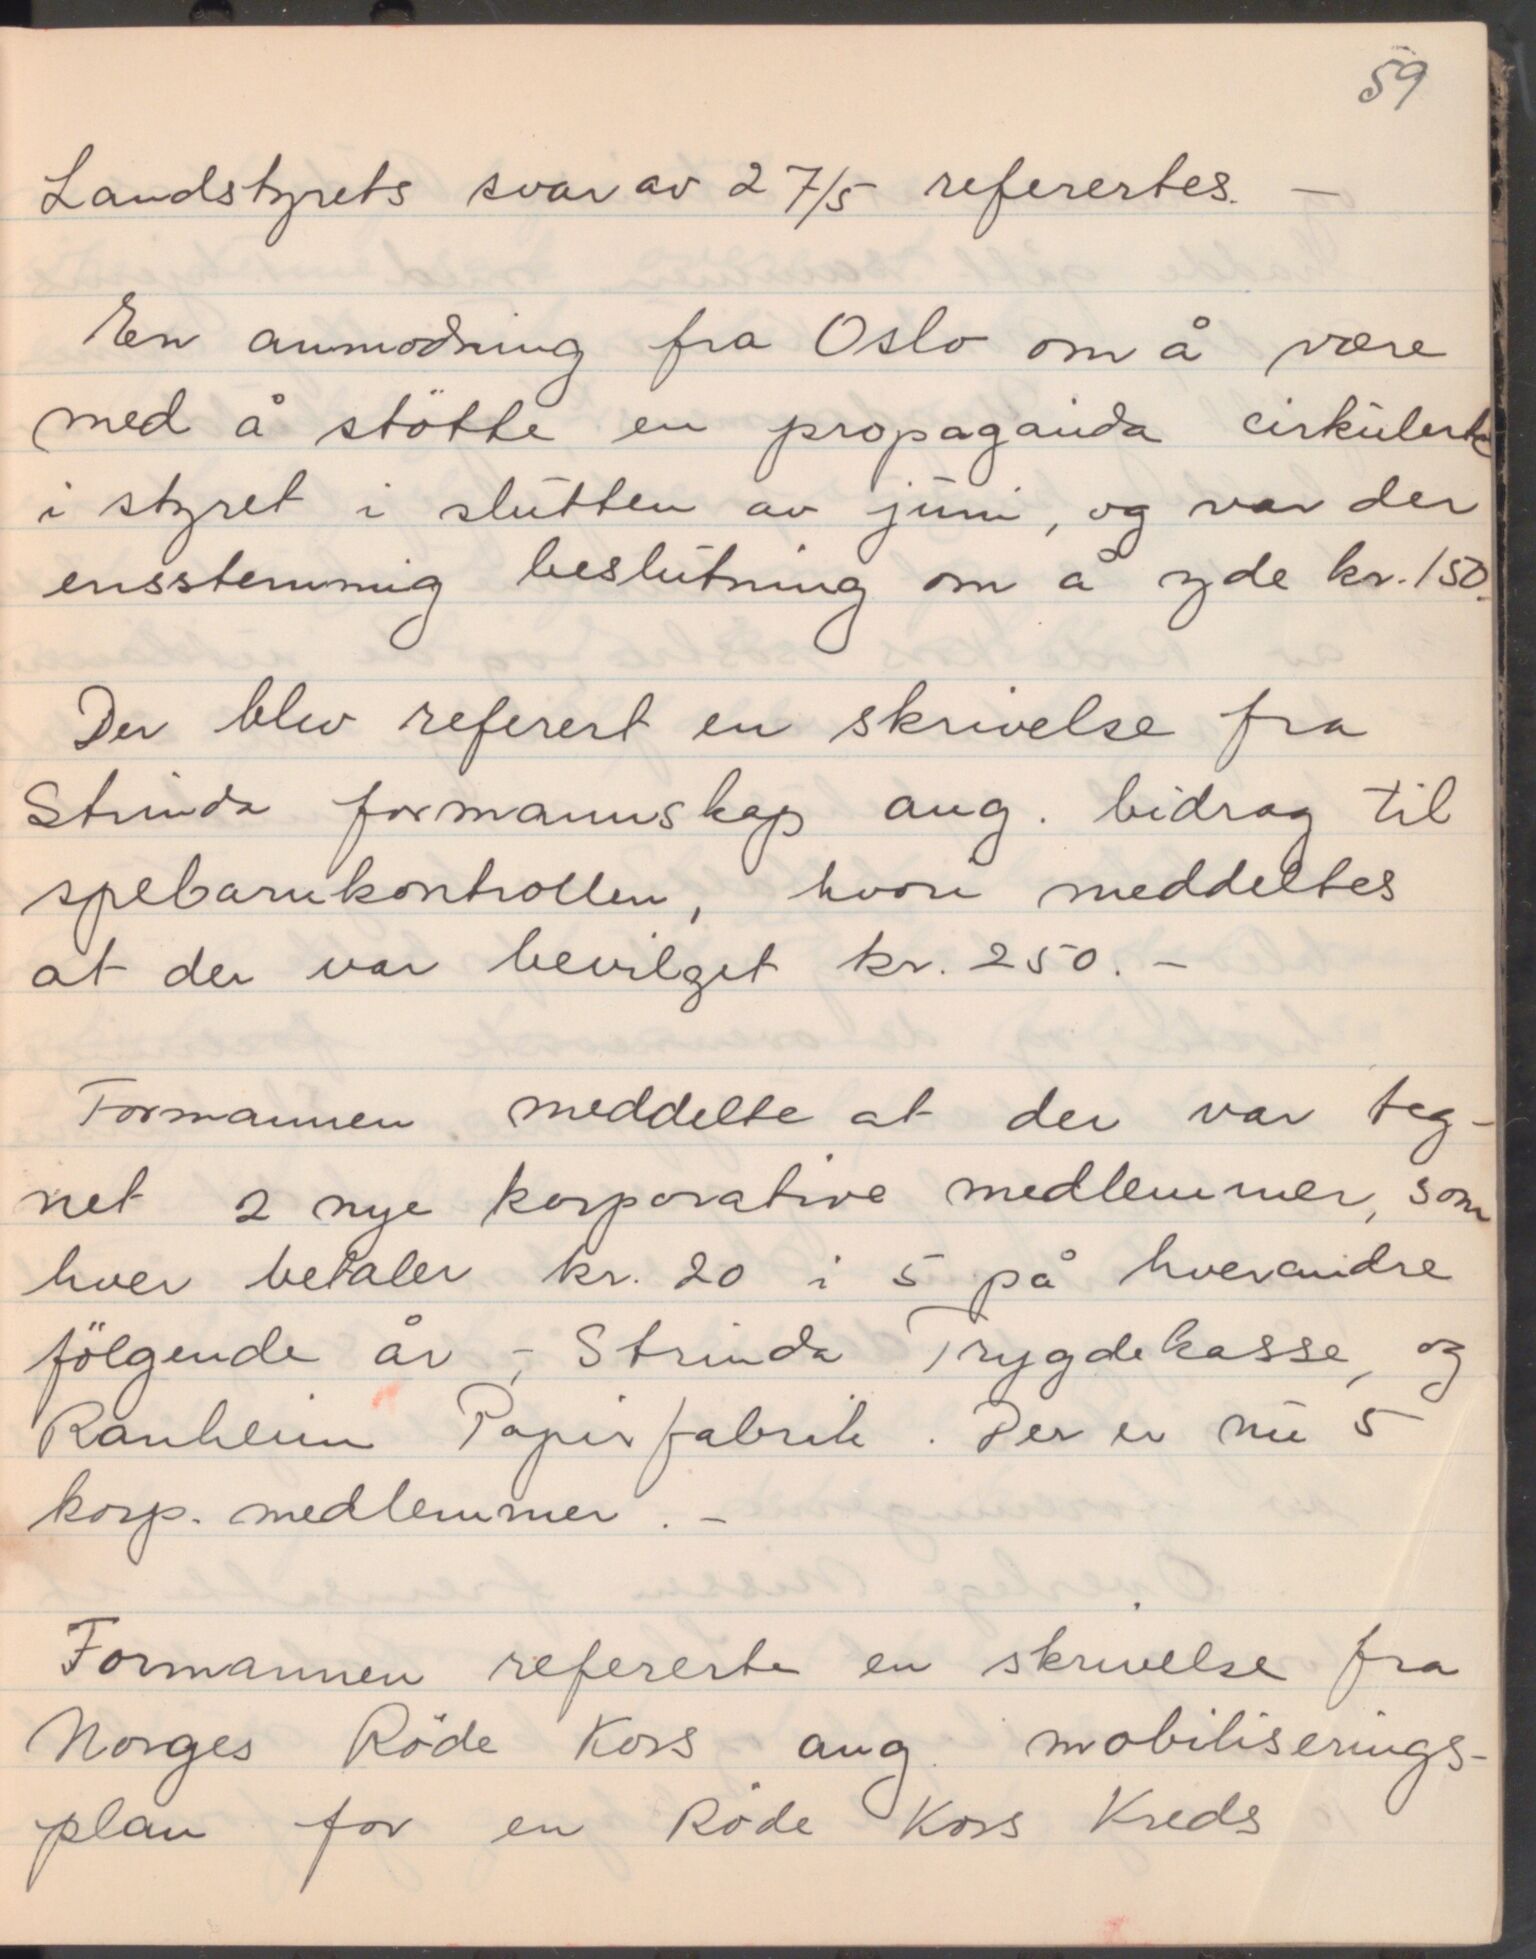 59
Landstyrets svar av 27/5 refererтes. —
En anmodning fra Oslo om å være
med å stötte en propaganda cirkulerte
i styret i slutten av juni, og var der
ensstemmig beslutning om å yde kr. 150.-
Der blev referert en skrivelse fra
Strinda formannskap ang. bidrag til
spebarnkontrollen, hvori meddeltes
at der var bevilget kr. 250. -
Formannen meddelte at der var teg-
net 2 nye korporative medlemmer, som
hver betaler kr. 20 i 5 på hverandre
fölgende år -, Strinda Trygdekasse, og
Ranheim Papirfabrik. Der er nu 5
korp. medlemmer. -
Formannen refererte en skrivelse fra
Norges Röde Kors ang. mobiliserings-
plan for en Röde Kors Kreds